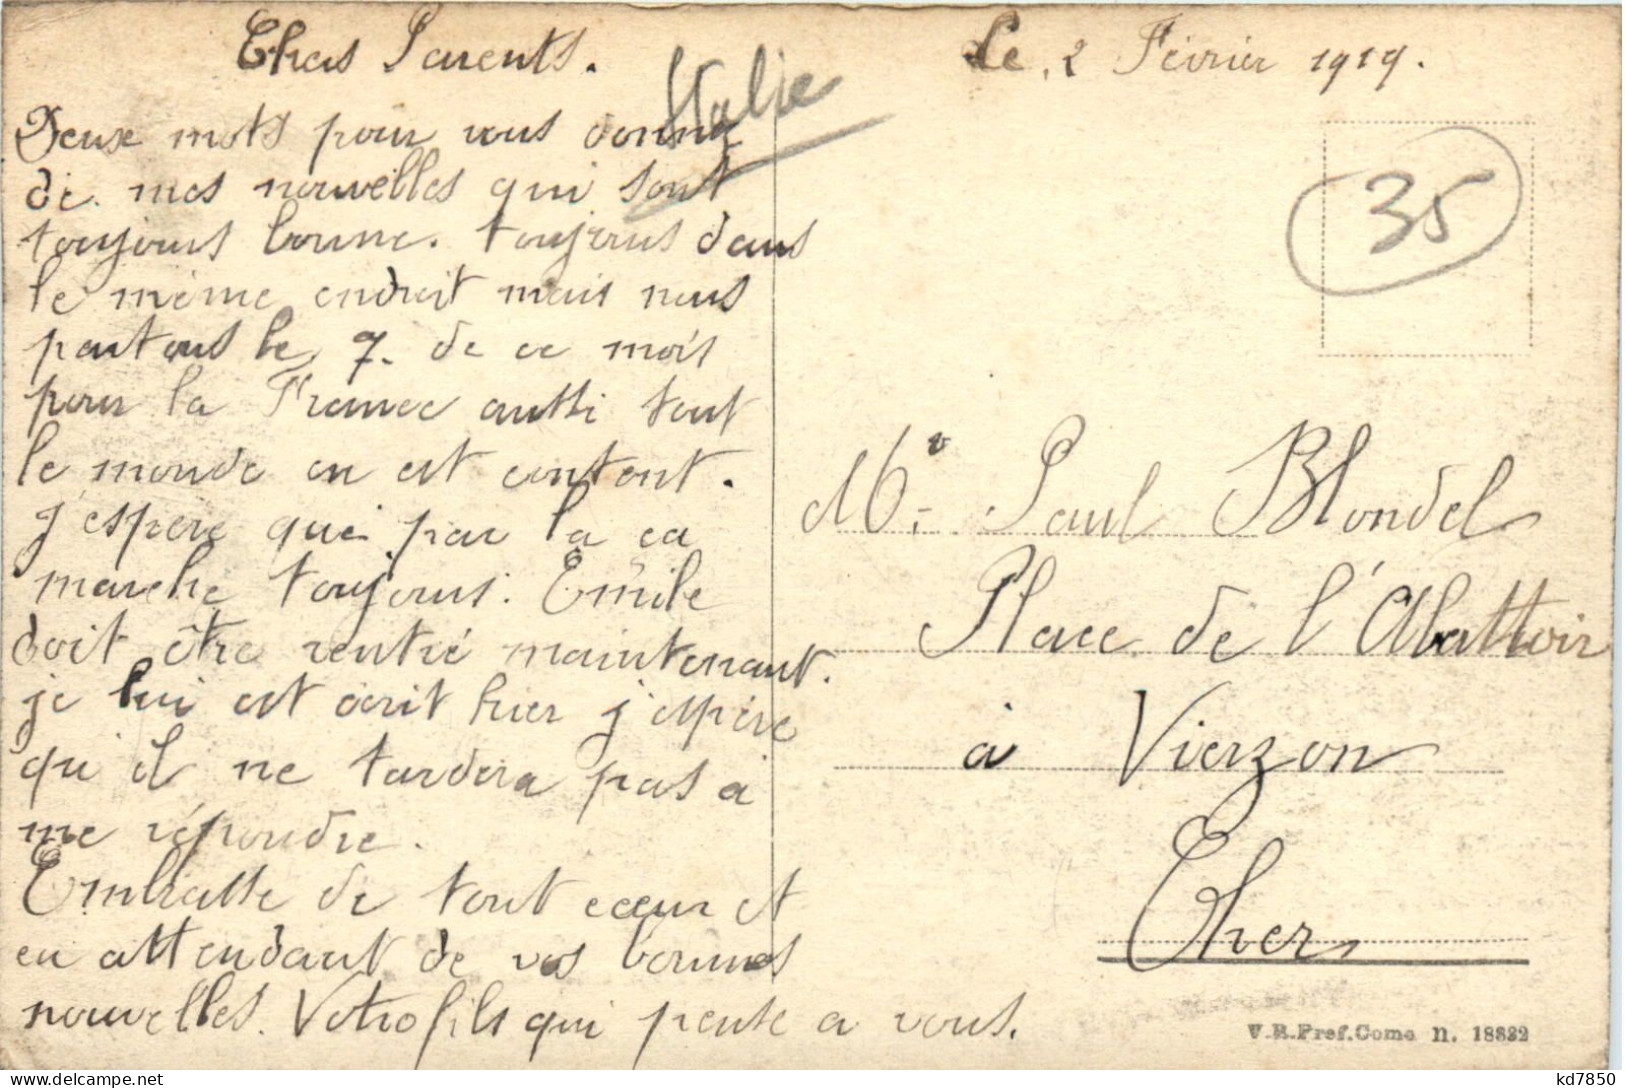 Chers Parents.
Le, 2 Février 1919.
Italie
Deux mots pour vous donne
de mes nouvelles qui sont
toujours bonne. toujours dans
le même endroit mais nous
partons le 7. de ce mois
pour la France aussi tout
le monde en est content.
j'espere que par la ca
marche toujours. Emile
doit être rentré maintenant.
je lui est écrit hier j'espère
qu'il ne tardera pas a
me répondre.
Embrasse de tout cœur et
en attendant de vos bonnes
nouvelles. Votre fils qui pense a vous.
35
Mr. Paul Blondel
Place de l'Abattoir
à Vierzon
Cher
V.R.Pref.Como n. 18822
kd7850